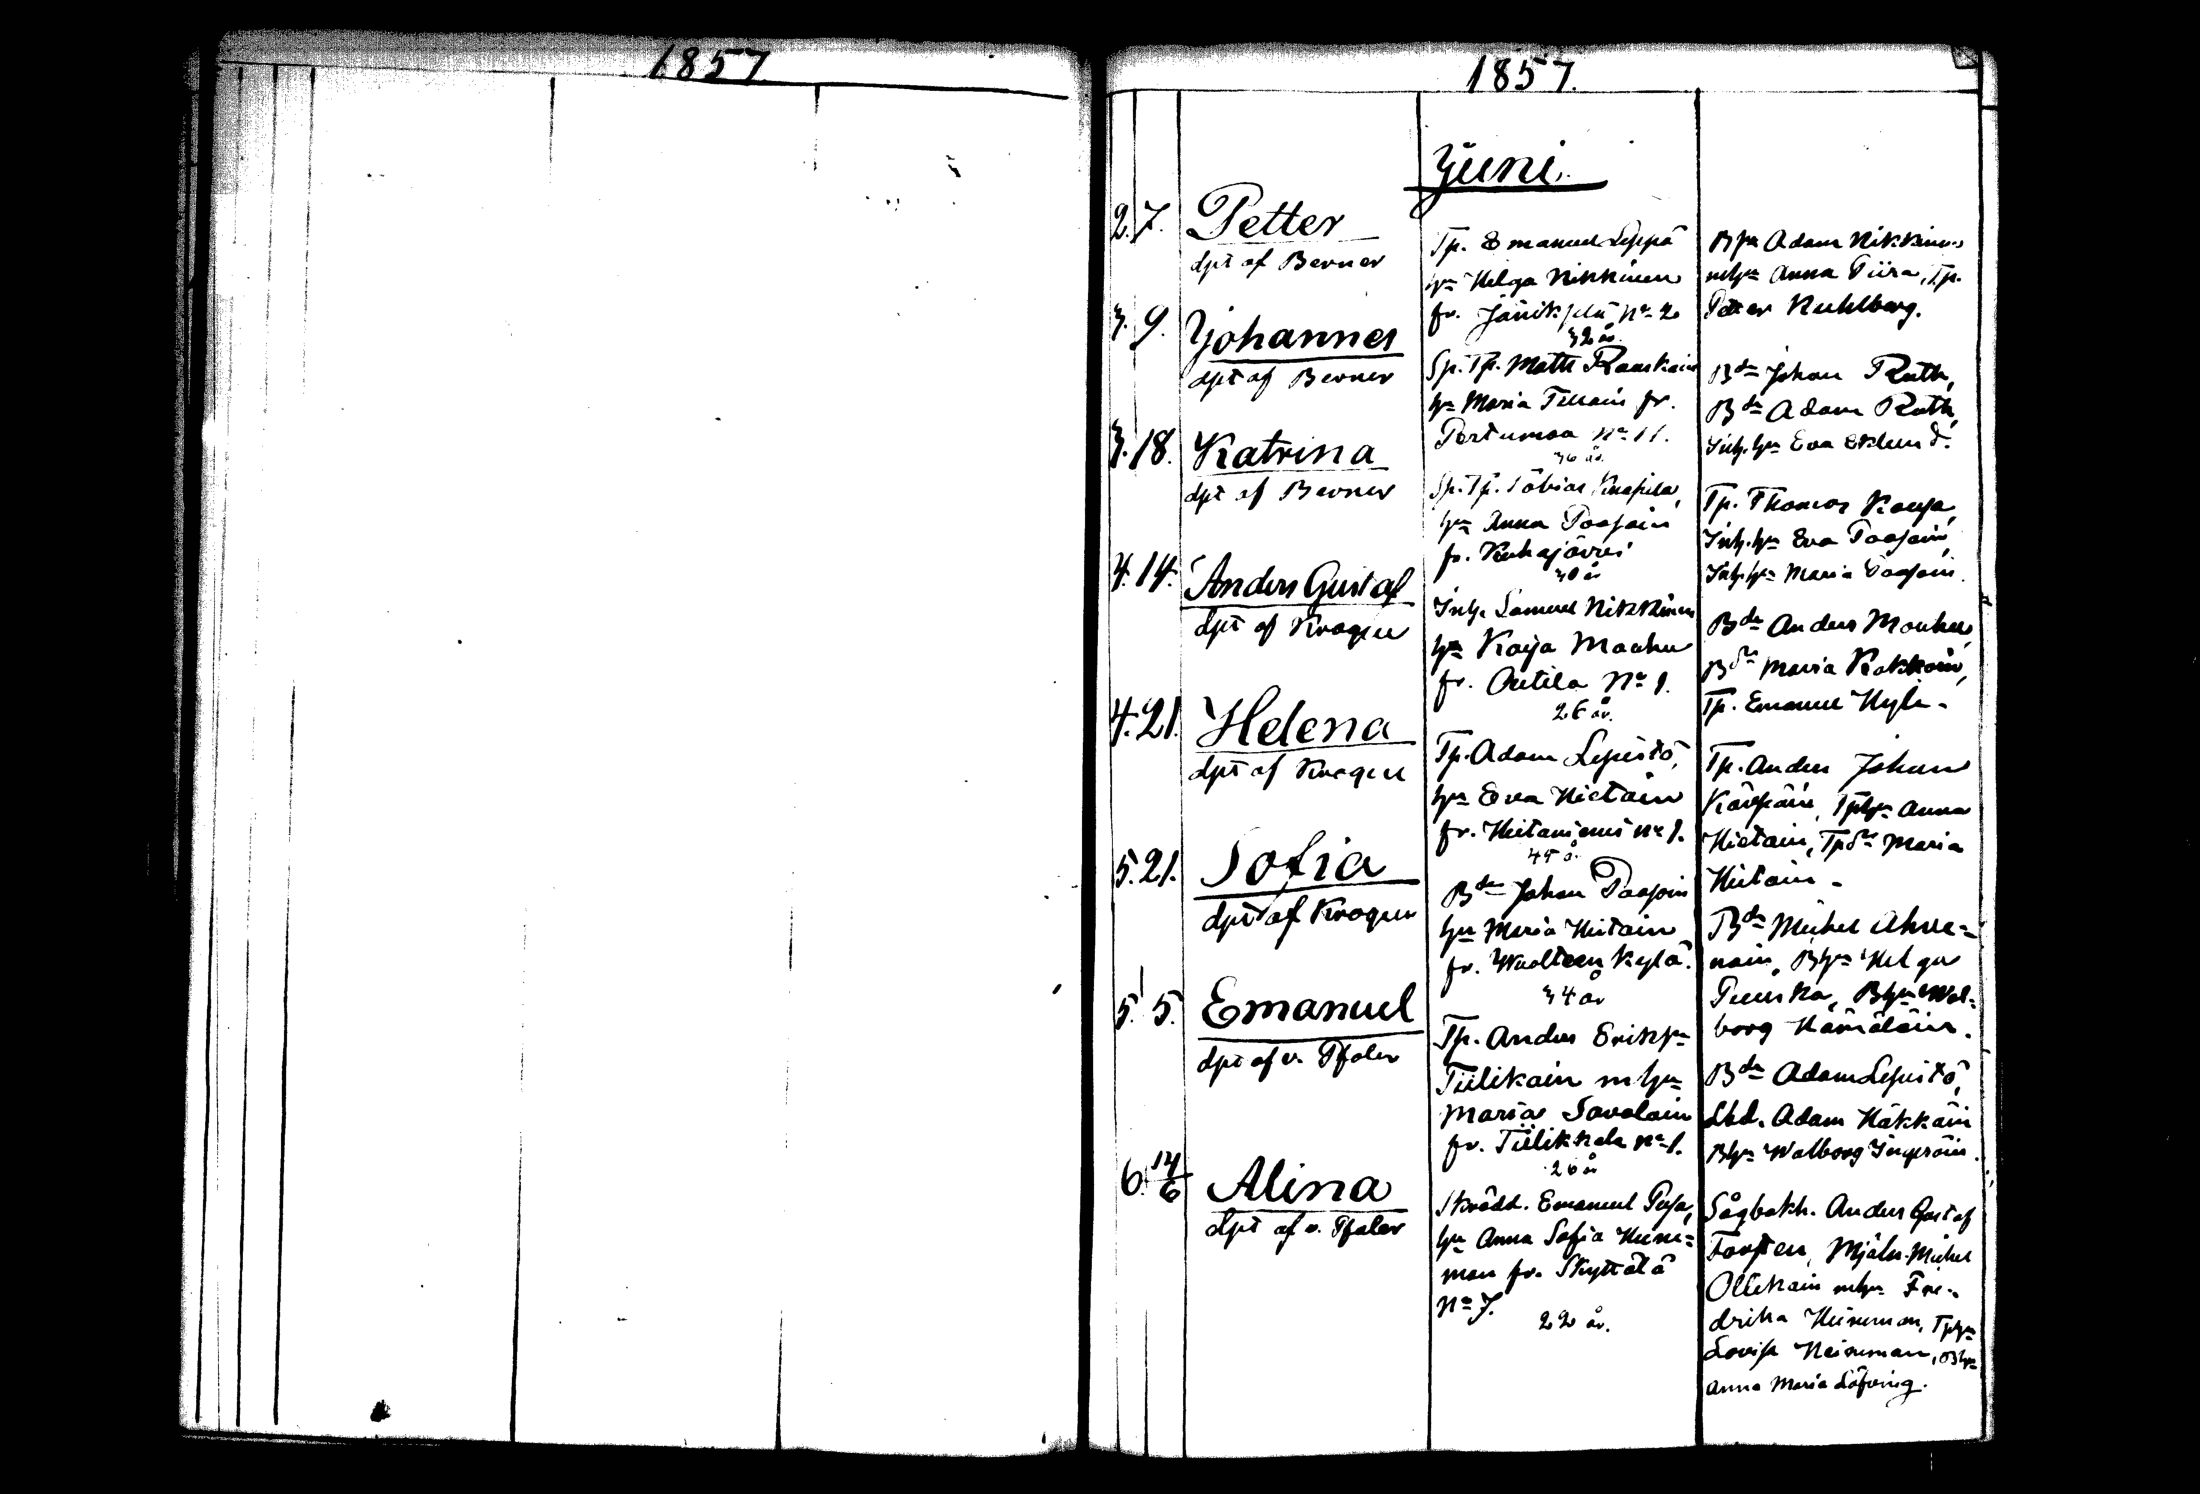 1857
1857.
Juni.
2. 7. Petter
dpt af Berner
Tp. Emanuel Leppä
hu Helga Nikkinen
fr. Jänik N° 2
32 år.
Adam Nikkinen
mhu Anna Piira, Tp.
Petter Kuhlberg.
3. 9. Johannes
dpt af Berner
Sp. Tp. Matts Rauskain
hu Maria Tellain fr.
Portumoa N° 11.
36 år.
Bdn Johan Ruth,
Bdn Adam Ruth,
Inh. hu Eva Eklund.
3. 18. Katrina
dpt af Berner
Sp. Tp. Tobias
hu Anna Paasain
fr. Kuhajärvi
30 år
Tp. Thomas
Inh. hu Eva Paasain,
Inh. hu Maria Paasain.
4. 14. Anders Gustaf
dpt af Krogeu
Inh. Samuel Nikkinen
hu Kaija Maahu
fr. Autila N° 1.
26 år.
Bdn Anders Monhu,
Bdr Maria Kokkoin,
Tp. Emanuel Hyle-
4. 21. Helena
dpt af Krogeu
Tp. Adam Lepistö,
hu Eva Hietain
fr. Hietaniemi N° 1.
45 å.
Tp. Anders Johan
Kärpäin, Tphu Anna
Hietain, Tpdr Maria
Hietain-
5. 21. Sofia
dpt af Krogeu
Bdn Johan Paasoin
hu Maria Hietain
fr. Wuolteen kylä.
34 år
Bdn Michel Ahve=
nain, Bhu Helga
Puuska, Bhu Wal=
borg Hämäläin.
5. 5. Emanuel
dpt af v. Pfaler
Tp. Anders Eriksn
Tiilikain mhu
Maria Savolain
fr. Tiilikkala N° 1.
26 år
Bdn Adam Lepistö,
Lbd. Adam Häkkäin
Bhu Walborg Ingeröin.
6. 14/6 Alina
dpt af v. Pfaler
Skrädd. Emanuel Pusa,
hu Anna Sofia Heine=
man fr. Skyttälä
N° 7.
22 år.
Sågbokh. Anders Gustaf
Forsten, Mjöln. Michel
Ollikain mhu Fre=
drika Heineman, Tphu
Lovisa Heineman, Bhu
Anna Maria Löfving.